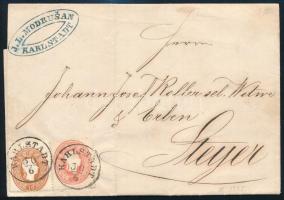 J.L. MODRUŠAN
KARLSTADT
Herrn
Johann Josef Koller sel. Witwe
& Erben
Steyer
KARLSTADT
KARLSTADT